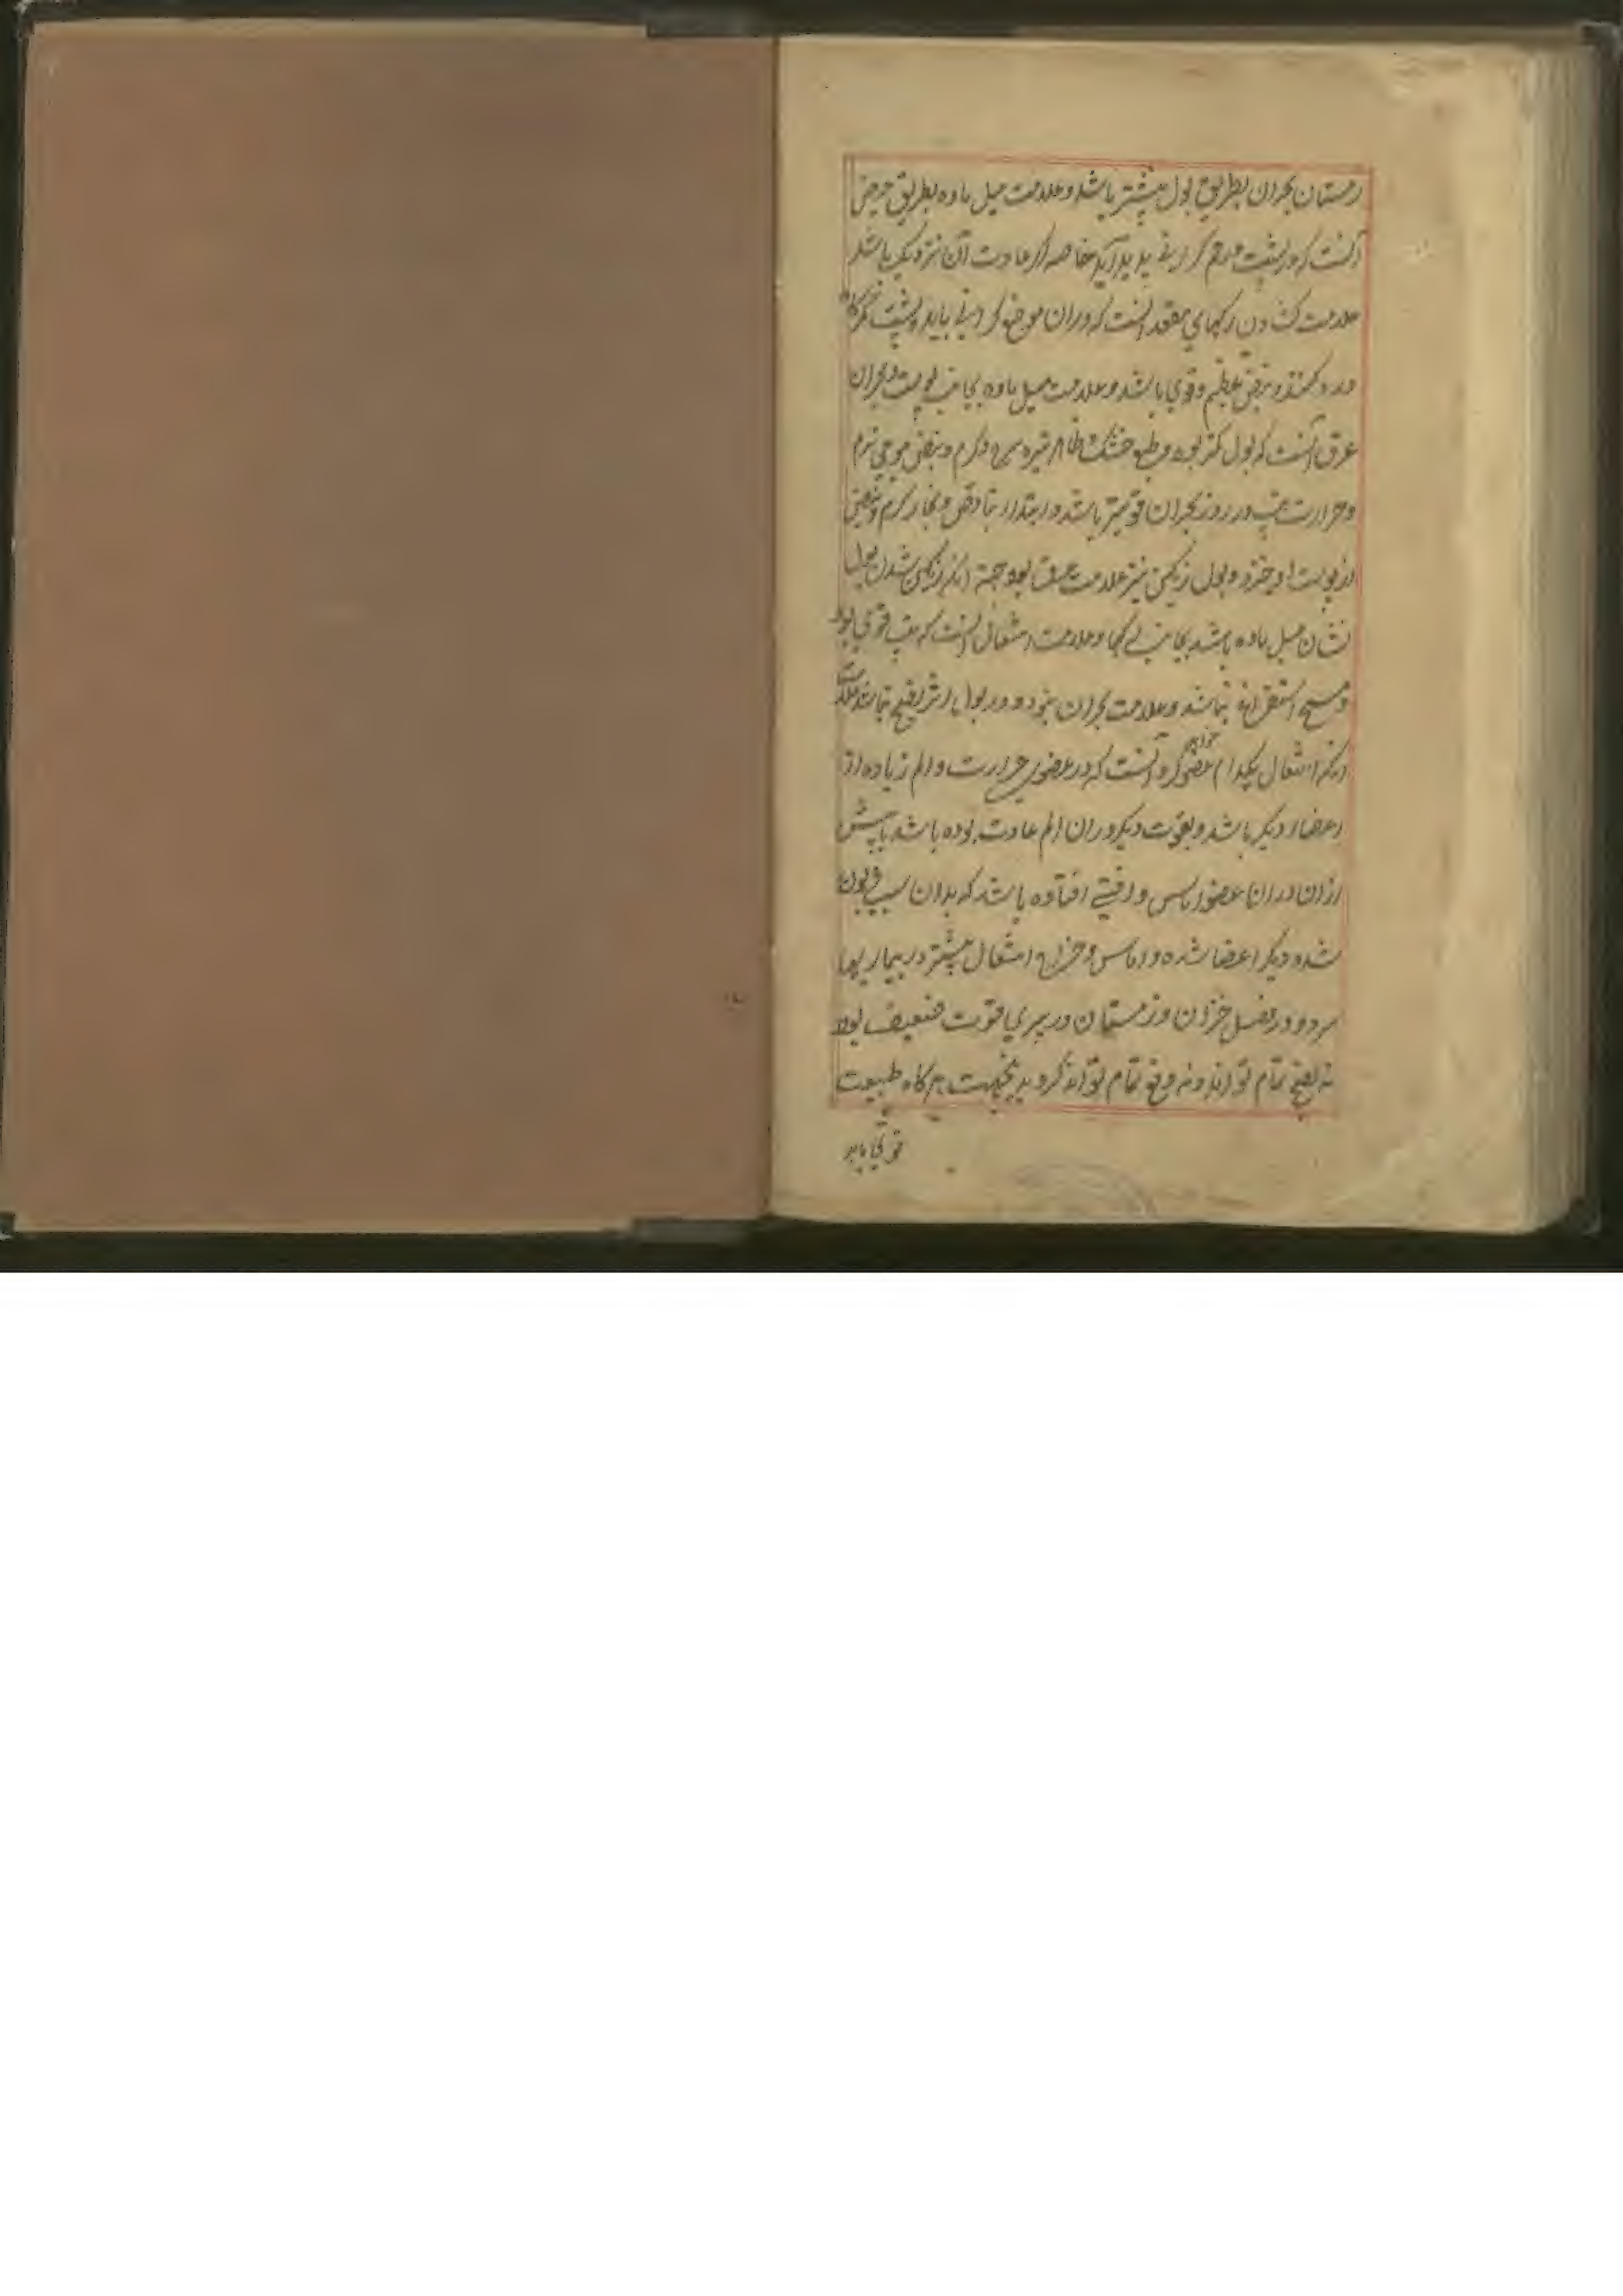 زمستان بحران بطریق بول بیشتر باشد و علامت میل ماده بطریق حیض
آنست که در پشت و رحم کرانی پدید آید خاصه اکر عادت آن نزدیک باشد
علامت کشادن رکهای مقعد آنست که در آن موضع کرانی یابد و پشت
درد کند و نبض عظیم و قوی باشد و علامت میل ماده بجانب پوست و بحران
عرق آنست که بول کمتر بود و طبع خشک و ظاهر تیره سرخ و کرم و نبض موجی نرم
و حرارت تب در روز بحران قویتر باشد و ابتدا و بخار کرم
از پوست او خیزد و بول رنکین نیز علامت عرق بود جهة آنکه رنکین شدن بول
نشان میل ماده باشد بجانب رکها و علامت انتقال آنست که تب قوی بود
و هیچ استفراغ نباشد و علامت بحران نبود و در بول اثر نضج نباشد علامت
آنکه انتقال بکدام عضو خواهد کرد آنست که در عضوی حرارت و الم زیاده از
اعضاء دیکر باشد و بقوت دیکر در آن الم عادت بوده باشد یا پیش
از آن در آن عضو اماس و آفتی افتاده باشد که بدان سبب
شده دیکر اعضا شده و اماس و خراج انتقال بیشتر در بیماریها
سرد و در فصل خزان و زمستان و در پیری قوت ضعیف بود
نه نضج تمام تواند و نه دفع تمام تواند کرد بدینجهت هرکاه طبیعت
قوی باید